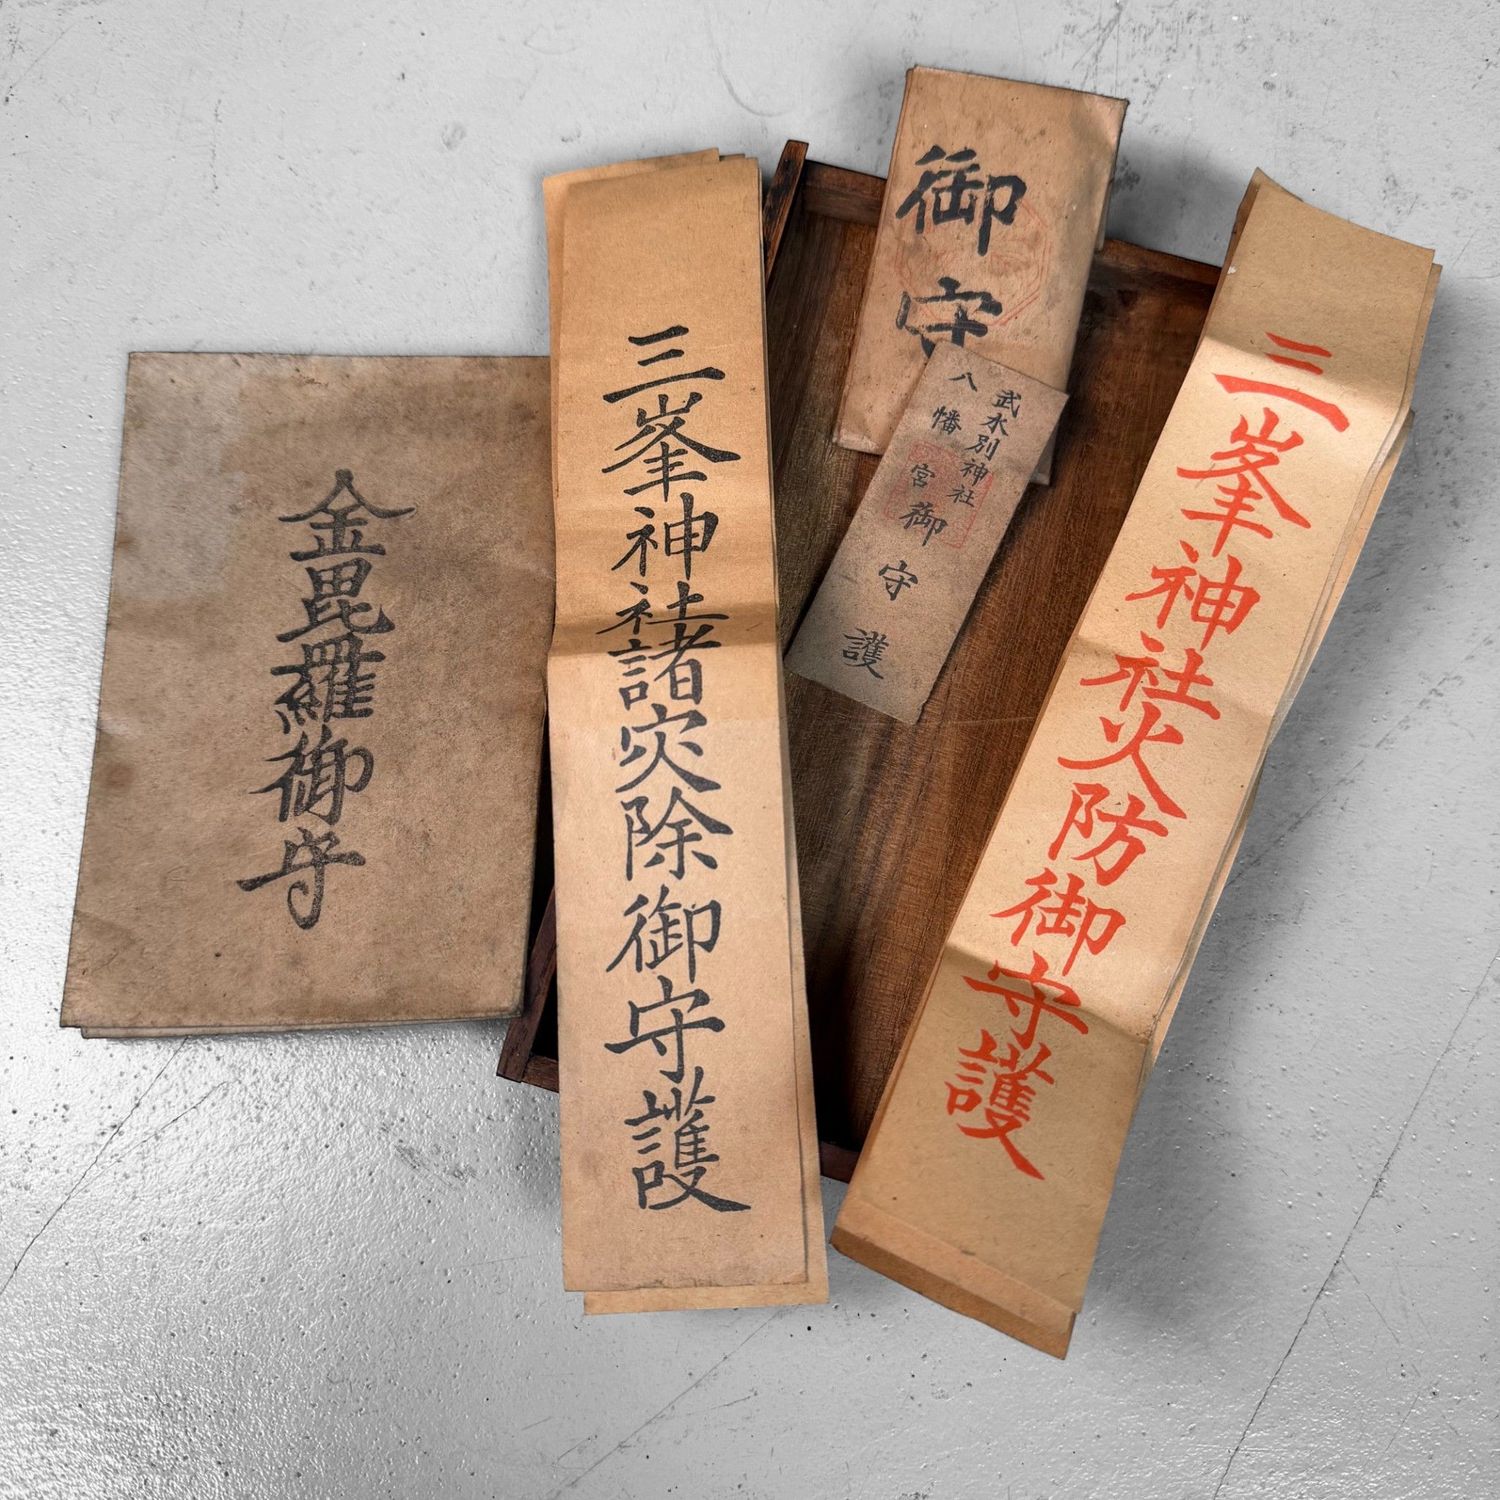 金毘羅御守
三峯神社諸災除御守護
御守
武水別神社
八幡宮御守護
三峯神社火防御守護